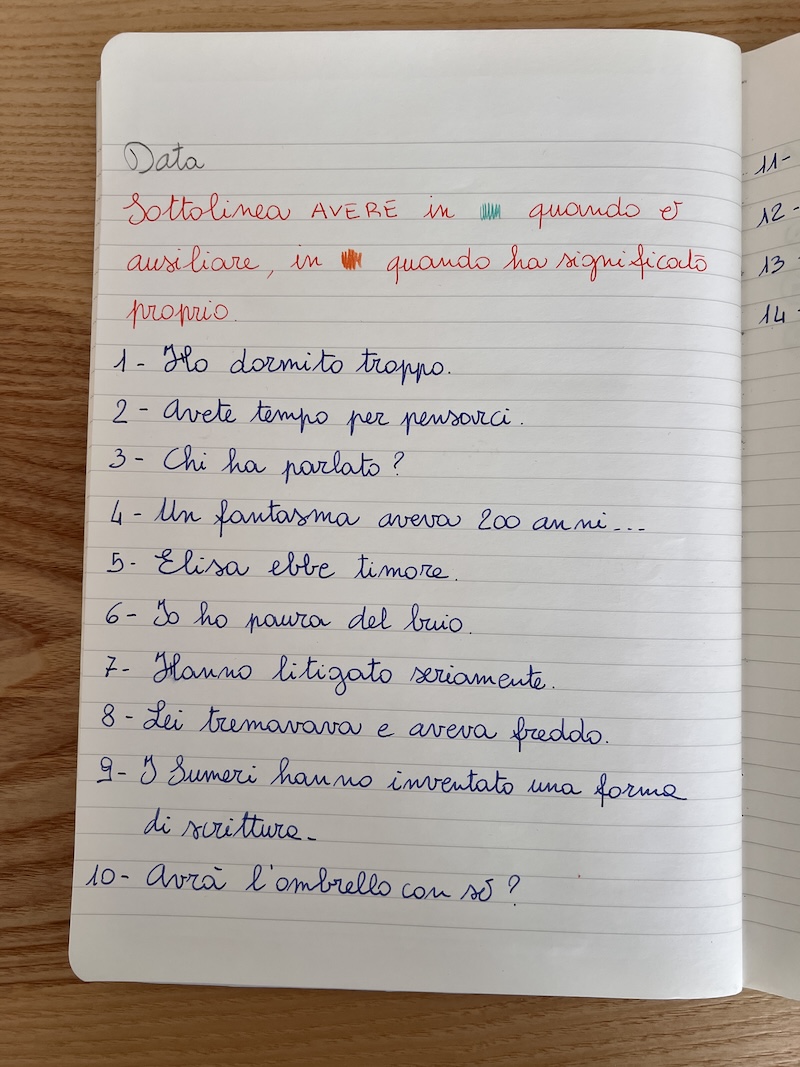 Data
Sottolinea AVERE in quando è
ausiliare, in quando ha significato
proprio.
1- Ho dormito troppo.
2- Avete tempo per pensarci.
3- Chi ha parlato?
4- Un fantasma aveva 200 anni...
5- Elisa ebbe timore.
6- Io ho paura del buio.
7- Hanno litigato seriamente.
8- Lei tremavava e aveva freddo.
9- I Sumeri hanno inventato una forma
di scrittura.
10- Avrà l'ombrello con sé?
11-
12-
13
14-